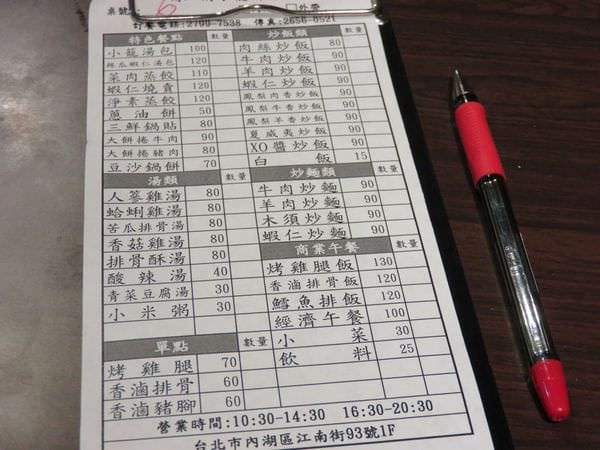 桌號
6
□外帶
訂餐電話:2799-7538 傳真:2656-0521
特色餐點 數量
小籠湯包 100
絲瓜蝦仁湯包 120
菜肉蒸餃 110
蝦仁燒賣 120
淨素蒸餃 120
蔥油餅 50
三鮮鍋貼 80
大餅捲牛肉 90
大餅捲豬肉 80
豆沙鍋餅 70
湯類 數量
人蔘雞湯 80
蛤蜊雞湯 80
苦瓜排骨湯 80
香菇雞湯 80
排骨酥湯 80
酸辣湯 40
青菜豆腐湯 30
小米粥 30
單點 數量
烤雞腿 70
香滷排骨 60
香滷豬腳 60
炒飯類 數量
肉絲炒飯 80
牛肉炒飯 90
羊肉炒飯 90
蝦仁炒飯 90
鳳梨肉香炒飯 90
鳳梨牛香炒飯 90
鳳梨羊香炒飯 90
夏威夷炒飯 90
XO醬炒飯 90
白飯 15
炒麵類 數量
牛肉炒麵 90
羊肉炒麵 90
木須炒麵 90
蝦仁炒麵 90
商業午餐 數量
烤雞腿飯 130
香滷排骨飯 120
鱈魚排飯 120
經濟午餐 100
小菜 30
飲料 25
營業時間:10:30-14:30 16:30-20:30
台北市內湖區江南街93號1F